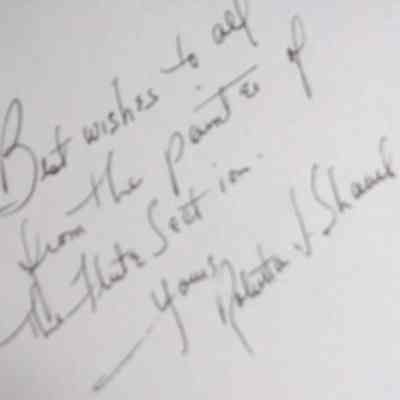 Best wishes to all
from the painter of
the Flute Section.
Yours,
Roberta J Shaw